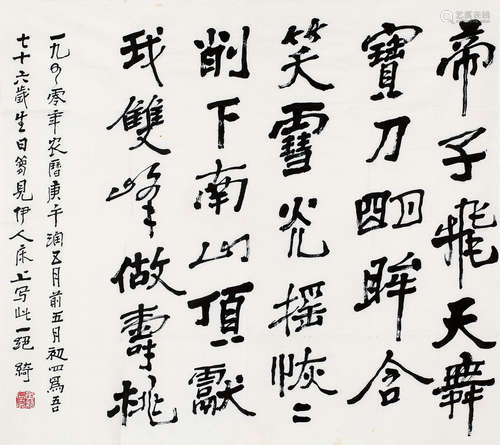 帝子飛天舞
寶刀回眸含
笑雪光摇恢二
削下南山頂獻
我雙峰做壽桃
一九九零年农曆庚午润五月前五月初四為吾
七十六歲生日夢見伊人床上写此一絕 綺